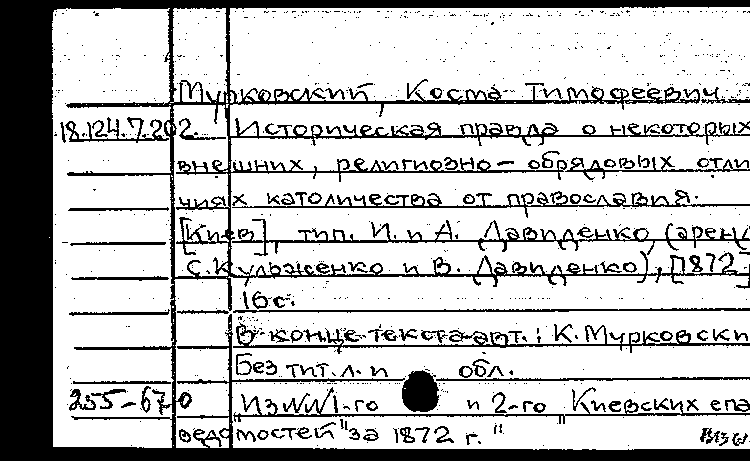 Мурковский, Коста Тимофеевич
18.124.7.202. Историческая правда о некоторых
внешних, религиозно-обрядовых отли
чиях католичества от православия.
[Киев], тип. И. и А. Давиденко, (аренд
С. Кульженко и В. Давиденко), [1872]
16 с.
В конце текста авт.: К. Мурковски
Без тит. л. и обл.
255-67-0 "Из №№1-го и 2-го Киевских епа
ведомостей" за 1872 г."